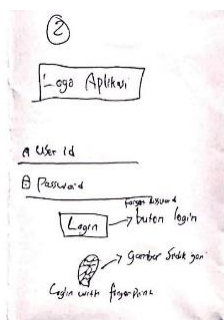 2
Logo Aplikasi
User id
Password
forgot password
Login
buton login
Gambar Sidik jari
Login with fingerprint